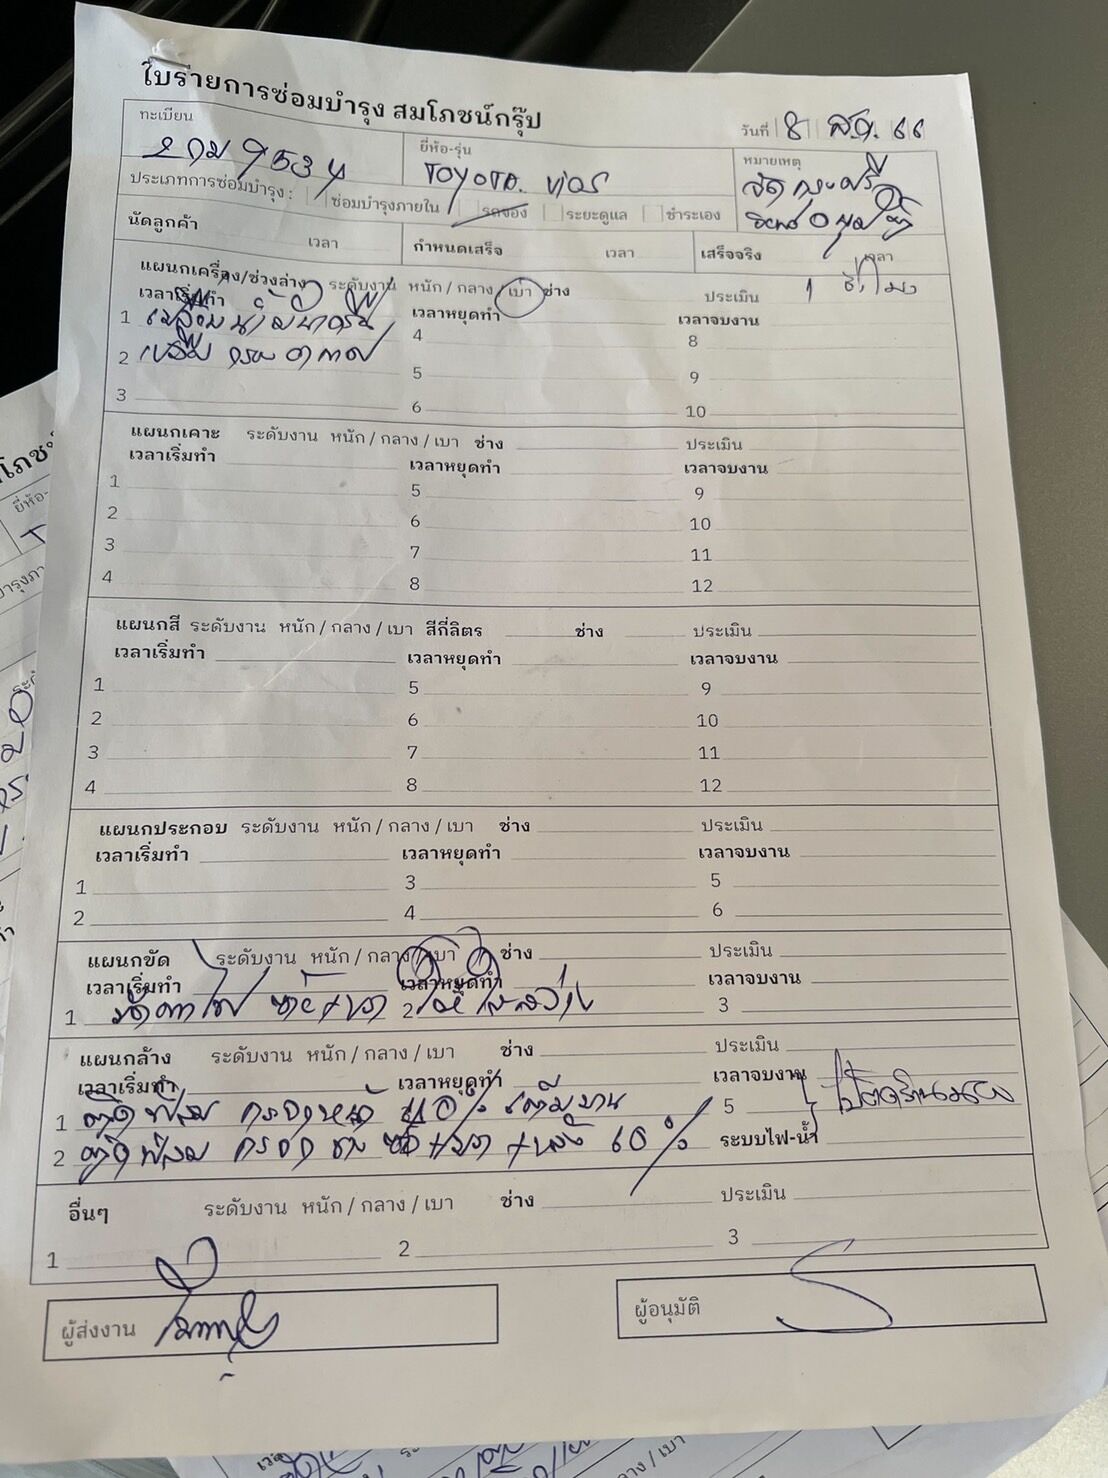 ใบรายการซ่อมบำรุง สมโภชน์กรุ๊ป
วันที่ 8 ส.ค. 66
ทะเบียน
2 กม 9534
ยี่ห้อ-รุ่น
TOYOTA. VIOS
หมายเหตุ
ประเภทการซ่อมบำรุง : ซ่อมบำรุงภายใน รถจอง ระยะดูแล ชำระเอง
นัดลูกค้า เวลา กำหนดเสร็จ เวลา เสร็จจริง เวลา
แผนกเครื่อง/ช่วงล่าง ระดับงาน หนัก / กลาง / เบา ช่าง ประเมิน 1 ชั่วโมง
เวลาเริ่มทำ เวลาหยุดทำ เวลาจบงาน
1 เปลี่ยนน้ำมันเครื่อง 4 8
2 เปลี่ยน กรองอากาศ 5 9
3 6 10
แผนกเคาะ ระดับงาน หนัก / กลาง / เบา ช่าง ประเมิน
เวลาเริ่มทำ เวลาหยุดทำ เวลาจบงาน
1 5 9
2 6 10
3 7 11
4 8 12
แผนกสี ระดับงาน หนัก / กลาง / เบา สีกี่ลิตร ช่าง ประเมิน
เวลาเริ่มทำ เวลาหยุดทำ เวลาจบงาน
1 5 9
2 6 10
3 7 11
4 8 12
แผนกประกอบ ระดับงาน หนัก / กลาง / เบา ช่าง ประเมิน
เวลาเริ่มทำ เวลาหยุดทำ เวลาจบงาน
1 3 5
2 4 6
แผนกขัด ระดับงาน หนัก / กลาง / เบา ช่าง ประเมิน
เวลาเริ่มทำ เวลาหยุดทำ เวลาจบงาน
1 ขัดตาไฟ ซ้าย+ขวา 2 ให้ใสสว่าง 3
แผนกล้าง ระดับงาน หนัก / กลาง / เบา ช่าง ประเมิน
เวลาเริ่มทำ เวลาหยุดทำ เวลาจบงาน
1 ติดฟิล์ม กระจกหน้า 40% เต็มบาน 5
2 ติดฟิล์ม กระจก ข้าง ซ้าย+ขวา +หลัง 60% ระบบไฟ-น้ำ
อื่นๆ ระดับงาน หนัก / กลาง / เบา ช่าง ประเมิน
1 2 3
ผู้ส่งงาน
ผู้อนุมัติ